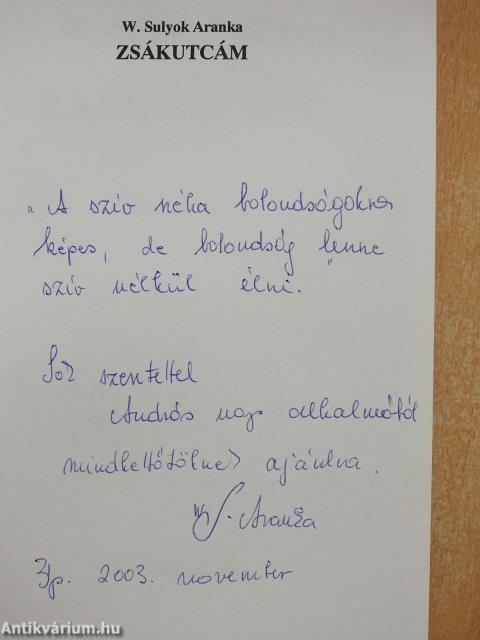 W. Sulyok Aranka
ZSÁKUTCÁM
"A szív néha bolondságokra
képes, de bolondság lenne
szív nélkül élni."
Sok szeretettel
András nap alkalmából
mindkettőtöknek ajánlva.
W S. Aranka
Zp. 2003. november
Antikvárium.hu